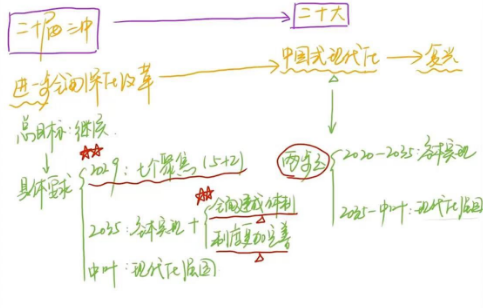 二十届三中
二十大
进一步全面深化改革
中国式现代化
复兴
总目标:继续
具体要求
2029:七个聚焦(5+2)
2035:基本实现+
全面建成体制
制度更加完善
中叶:现代化强国
两步走
2020-2035:基本实现
2035-中叶:现代化强国